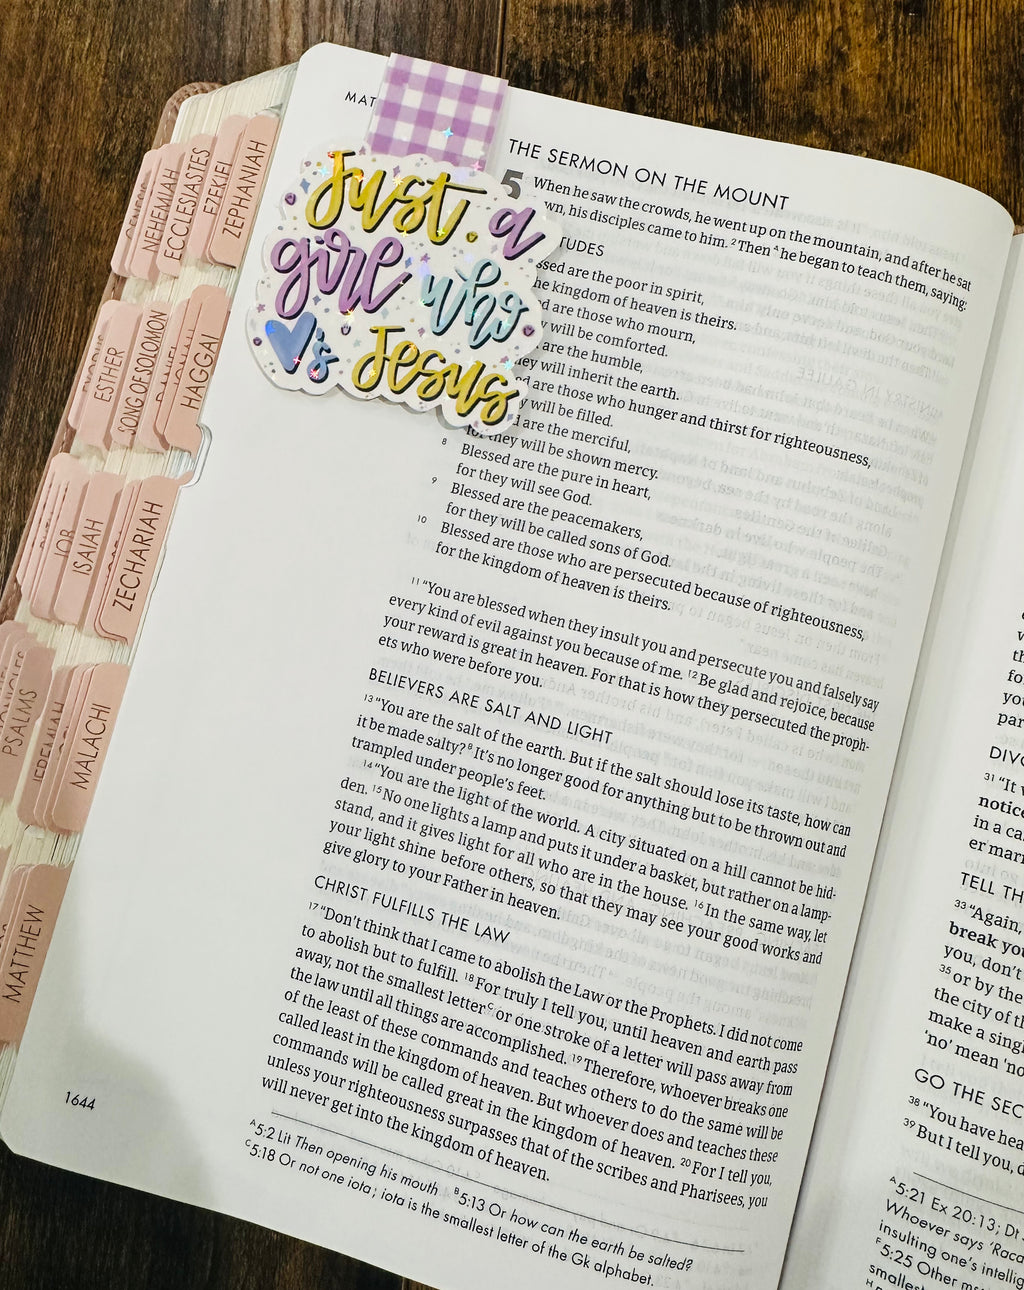 MAT
Just a
girl who
's Jesus
THE SERMON ON THE MOUNT
5 When he saw the crowds, he went up on the mountain, and after he sat
wn, his disciples came to him. 2 Then A he began to teach them, saying:
TUDES
ssed are the poor in spirit,
he kingdom of heaven is theirs.
d are those who mourn,
y will be comforted.
are the humble,
ey will inherit the earth.
d are those who hunger and thirst for righteousness,
y will be filled.
d are the merciful,
for they will be shown mercy.
8 Blessed are the pure in heart,
for they will see God.
9 Blessed are the peacemakers,
for they will be called sons of God.
10 Blessed are those who are persecuted because of righteousness,
for the kingdom of heaven is theirs.
11 “You are blessed when they insult you and persecute you and falsely say
every kind of evil against you because of me. 12 Be glad and rejoice, because
your reward is great in heaven. For that is how they persecuted the proph-
ets who were before you.
BELIEVERS ARE SALT AND LIGHT
13 “You are the salt of the earth. But if the salt should lose its taste, how can
it be made salty? B It’s no longer good for anything but to be thrown out and
trampled under people’s feet.
14 “You are the light of the world. A city situated on a hill cannot be hid-
den. 15 No one lights a lamp and puts it under a basket, but rather on a lamp-
stand, and it gives light for all who are in the house. 16 In the same way, let
your light shine before others, so that they may see your good works and
give glory to your Father in heaven.
CHRIST FULFILLS THE LAW
17 “Don’t think that I came to abolish the Law or the Prophets. I did not come
to abolish but to fulfill. 18 For truly I tell you, until heaven and earth pass
away, not the smallest letter C or one stroke of a letter will pass away from
the law until all things are accomplished. 19 Therefore, whoever breaks one
of the least of these commands and teaches others to do the same will be
called least in the kingdom of heaven. But whoever does and teaches these
commands will be called great in the kingdom of heaven. 20 For I tell you,
unless your righteousness surpasses that of the scribes and Pharisees, you
will never get into the kingdom of heaven.
A 5:2 Lit Then opening his mouth B 5:13 Or how can the earth be salted?
C 5:18 Or not one iota; iota is the smallest letter of the Gk alphabet.
1644
NEHEMIAH
ECCLESIASTES
EZEKIEL
ZEPHANIAH
ESTHER
SONG OF SOLOMON
HAGGAI
JOB
ISAIAH
ZECHARIAH
PSALMS
JEREMIAH
MALACHI
MATTHEW
th
fo
yo
par
DIVO
31 “It w
notice
in a ca
er marr
TELL TH
33 “Again,
break you
you, don’t
35 or by the
the city of th
make a singl
‘no’ mean ‘no
GO THE SEC
38 “You have hea
39 But I tell you, d
A 5:21 Ex 20:13; Dt
Whoever says ‘Raca
insulting one’s intellig
F 5:25 Other ms
smallest
H